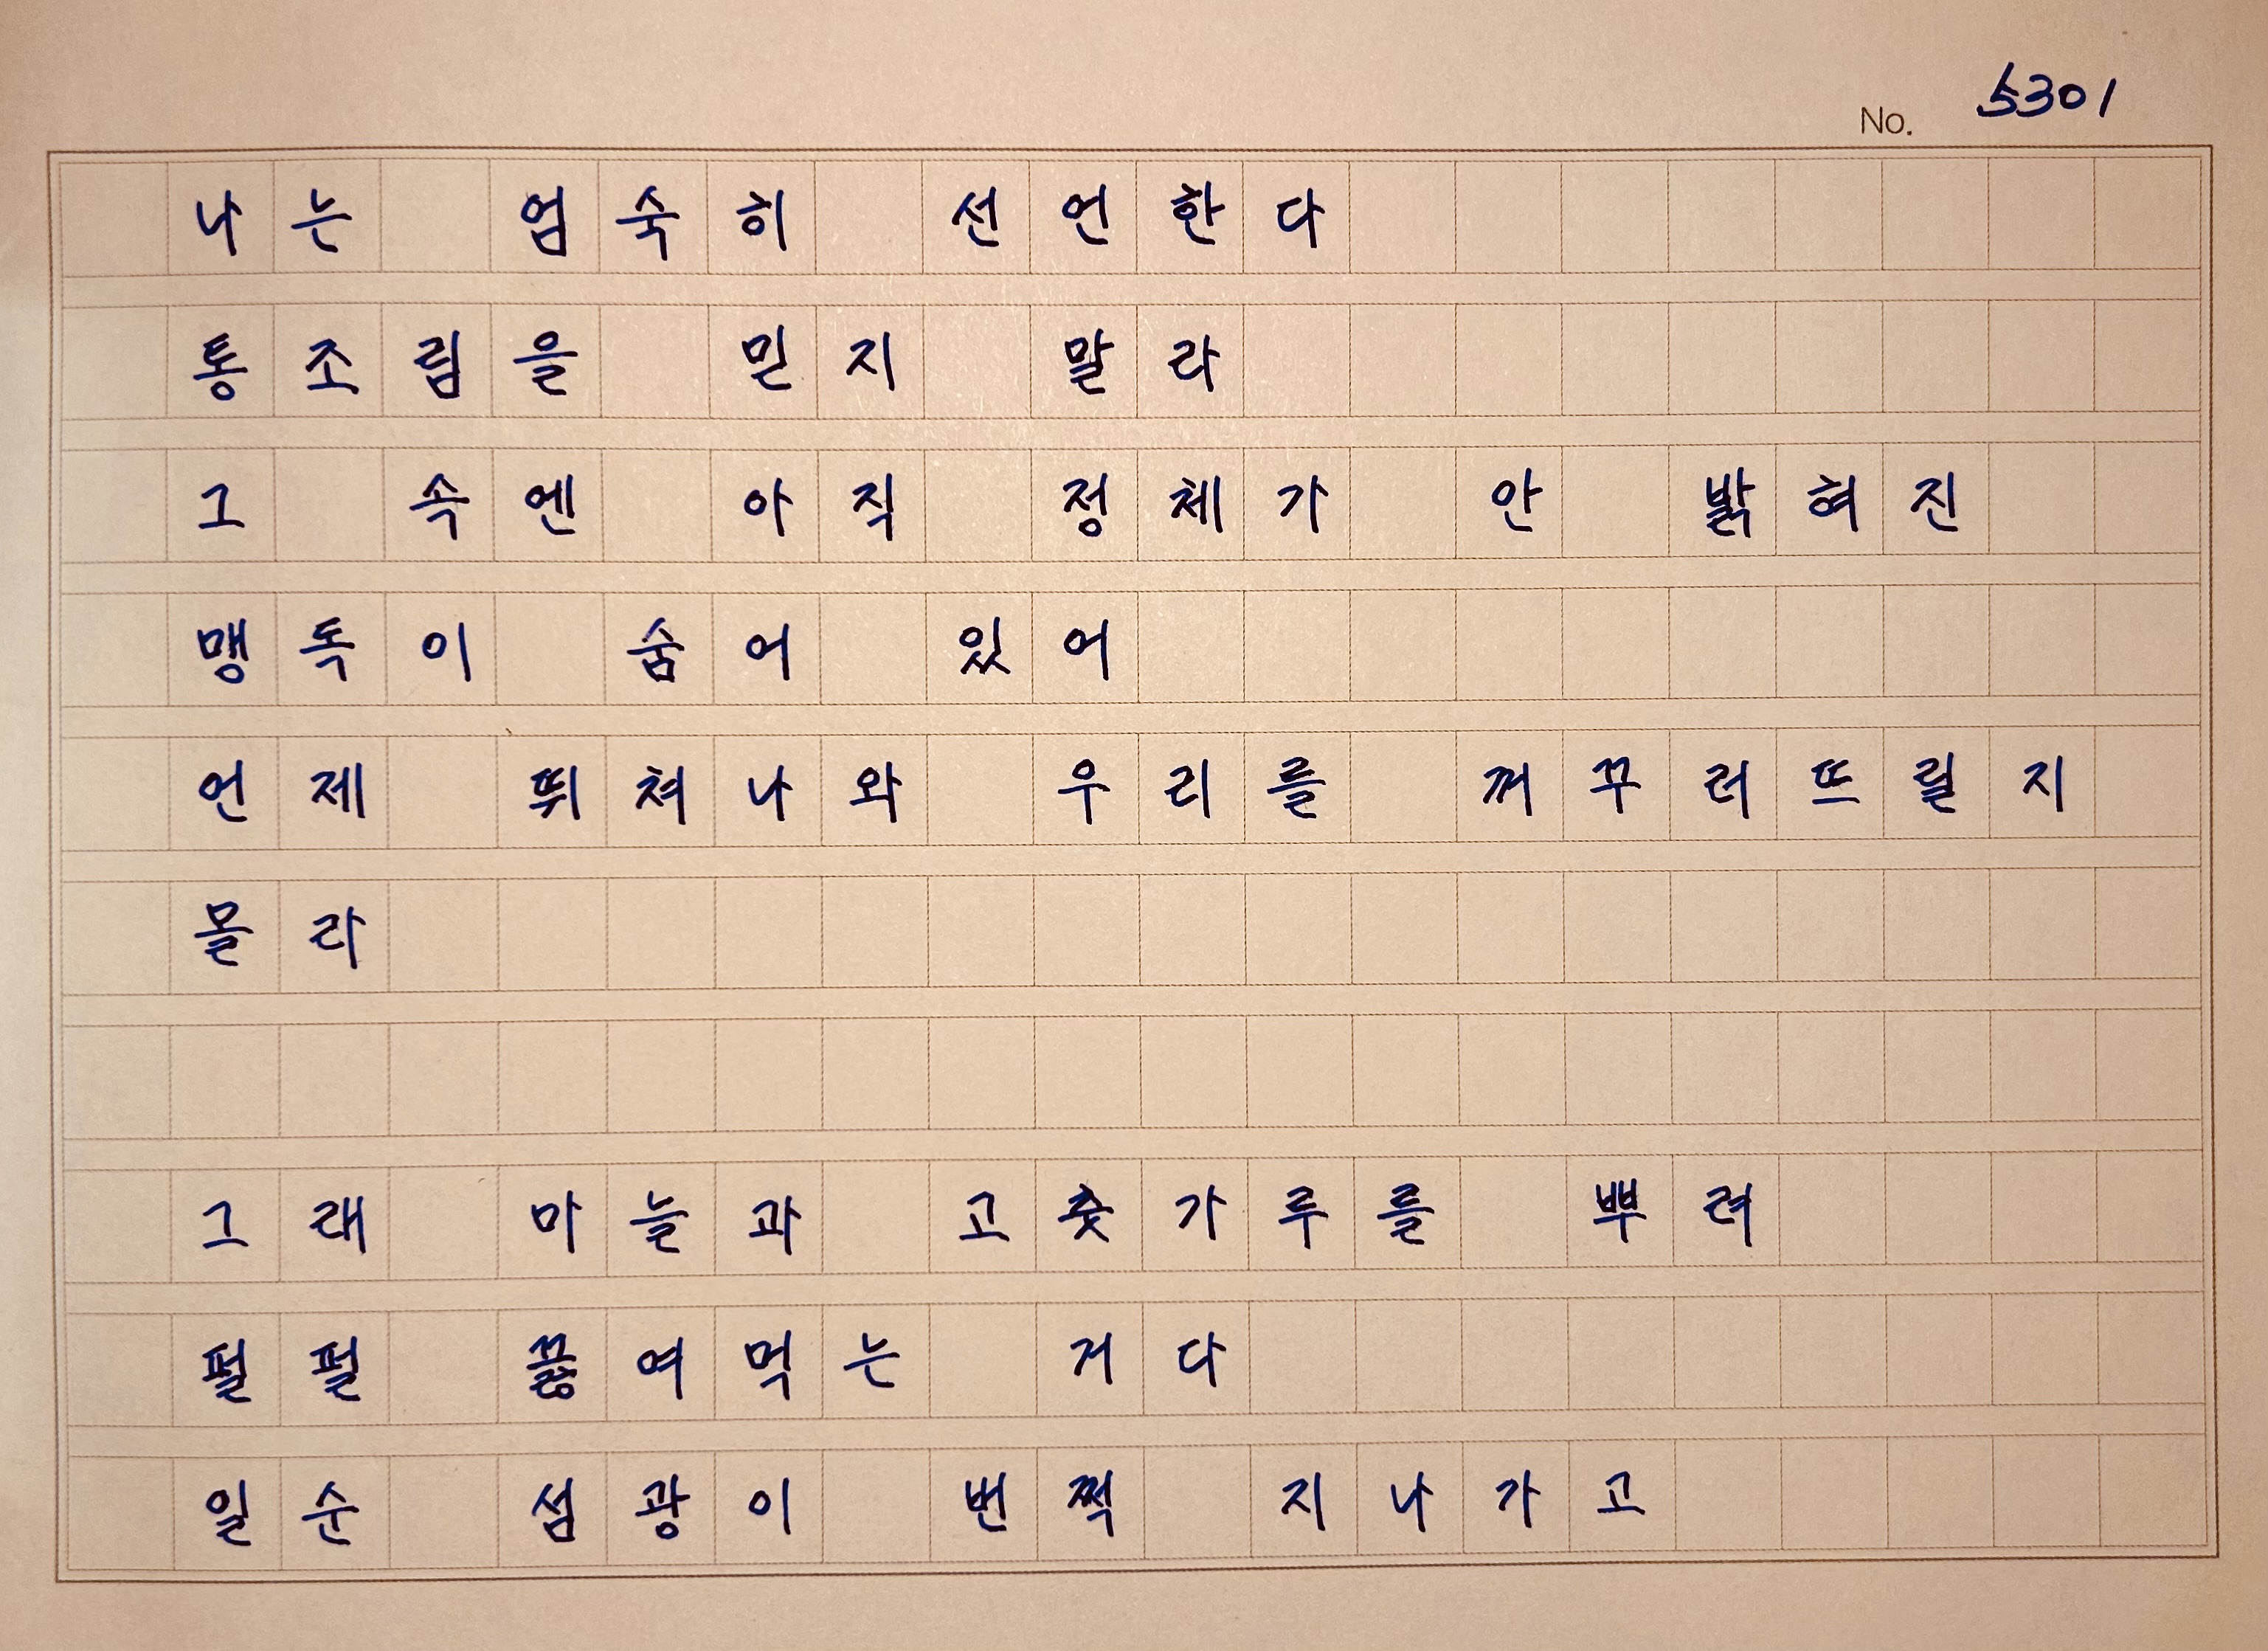 No. 5301
나는 엄숙히 선언한다
통조림을 믿지 말라
그 속엔 아직 정체가 안 밝혀진
맹독이 숨어 있어
언제 뛰쳐나와 우리를 꺼꾸러뜨릴지
몰라
그래 마늘과 고춧가루를 뿌려
펄펄 끓여먹는 거다
일순 섬광이 번쩍 지나가고